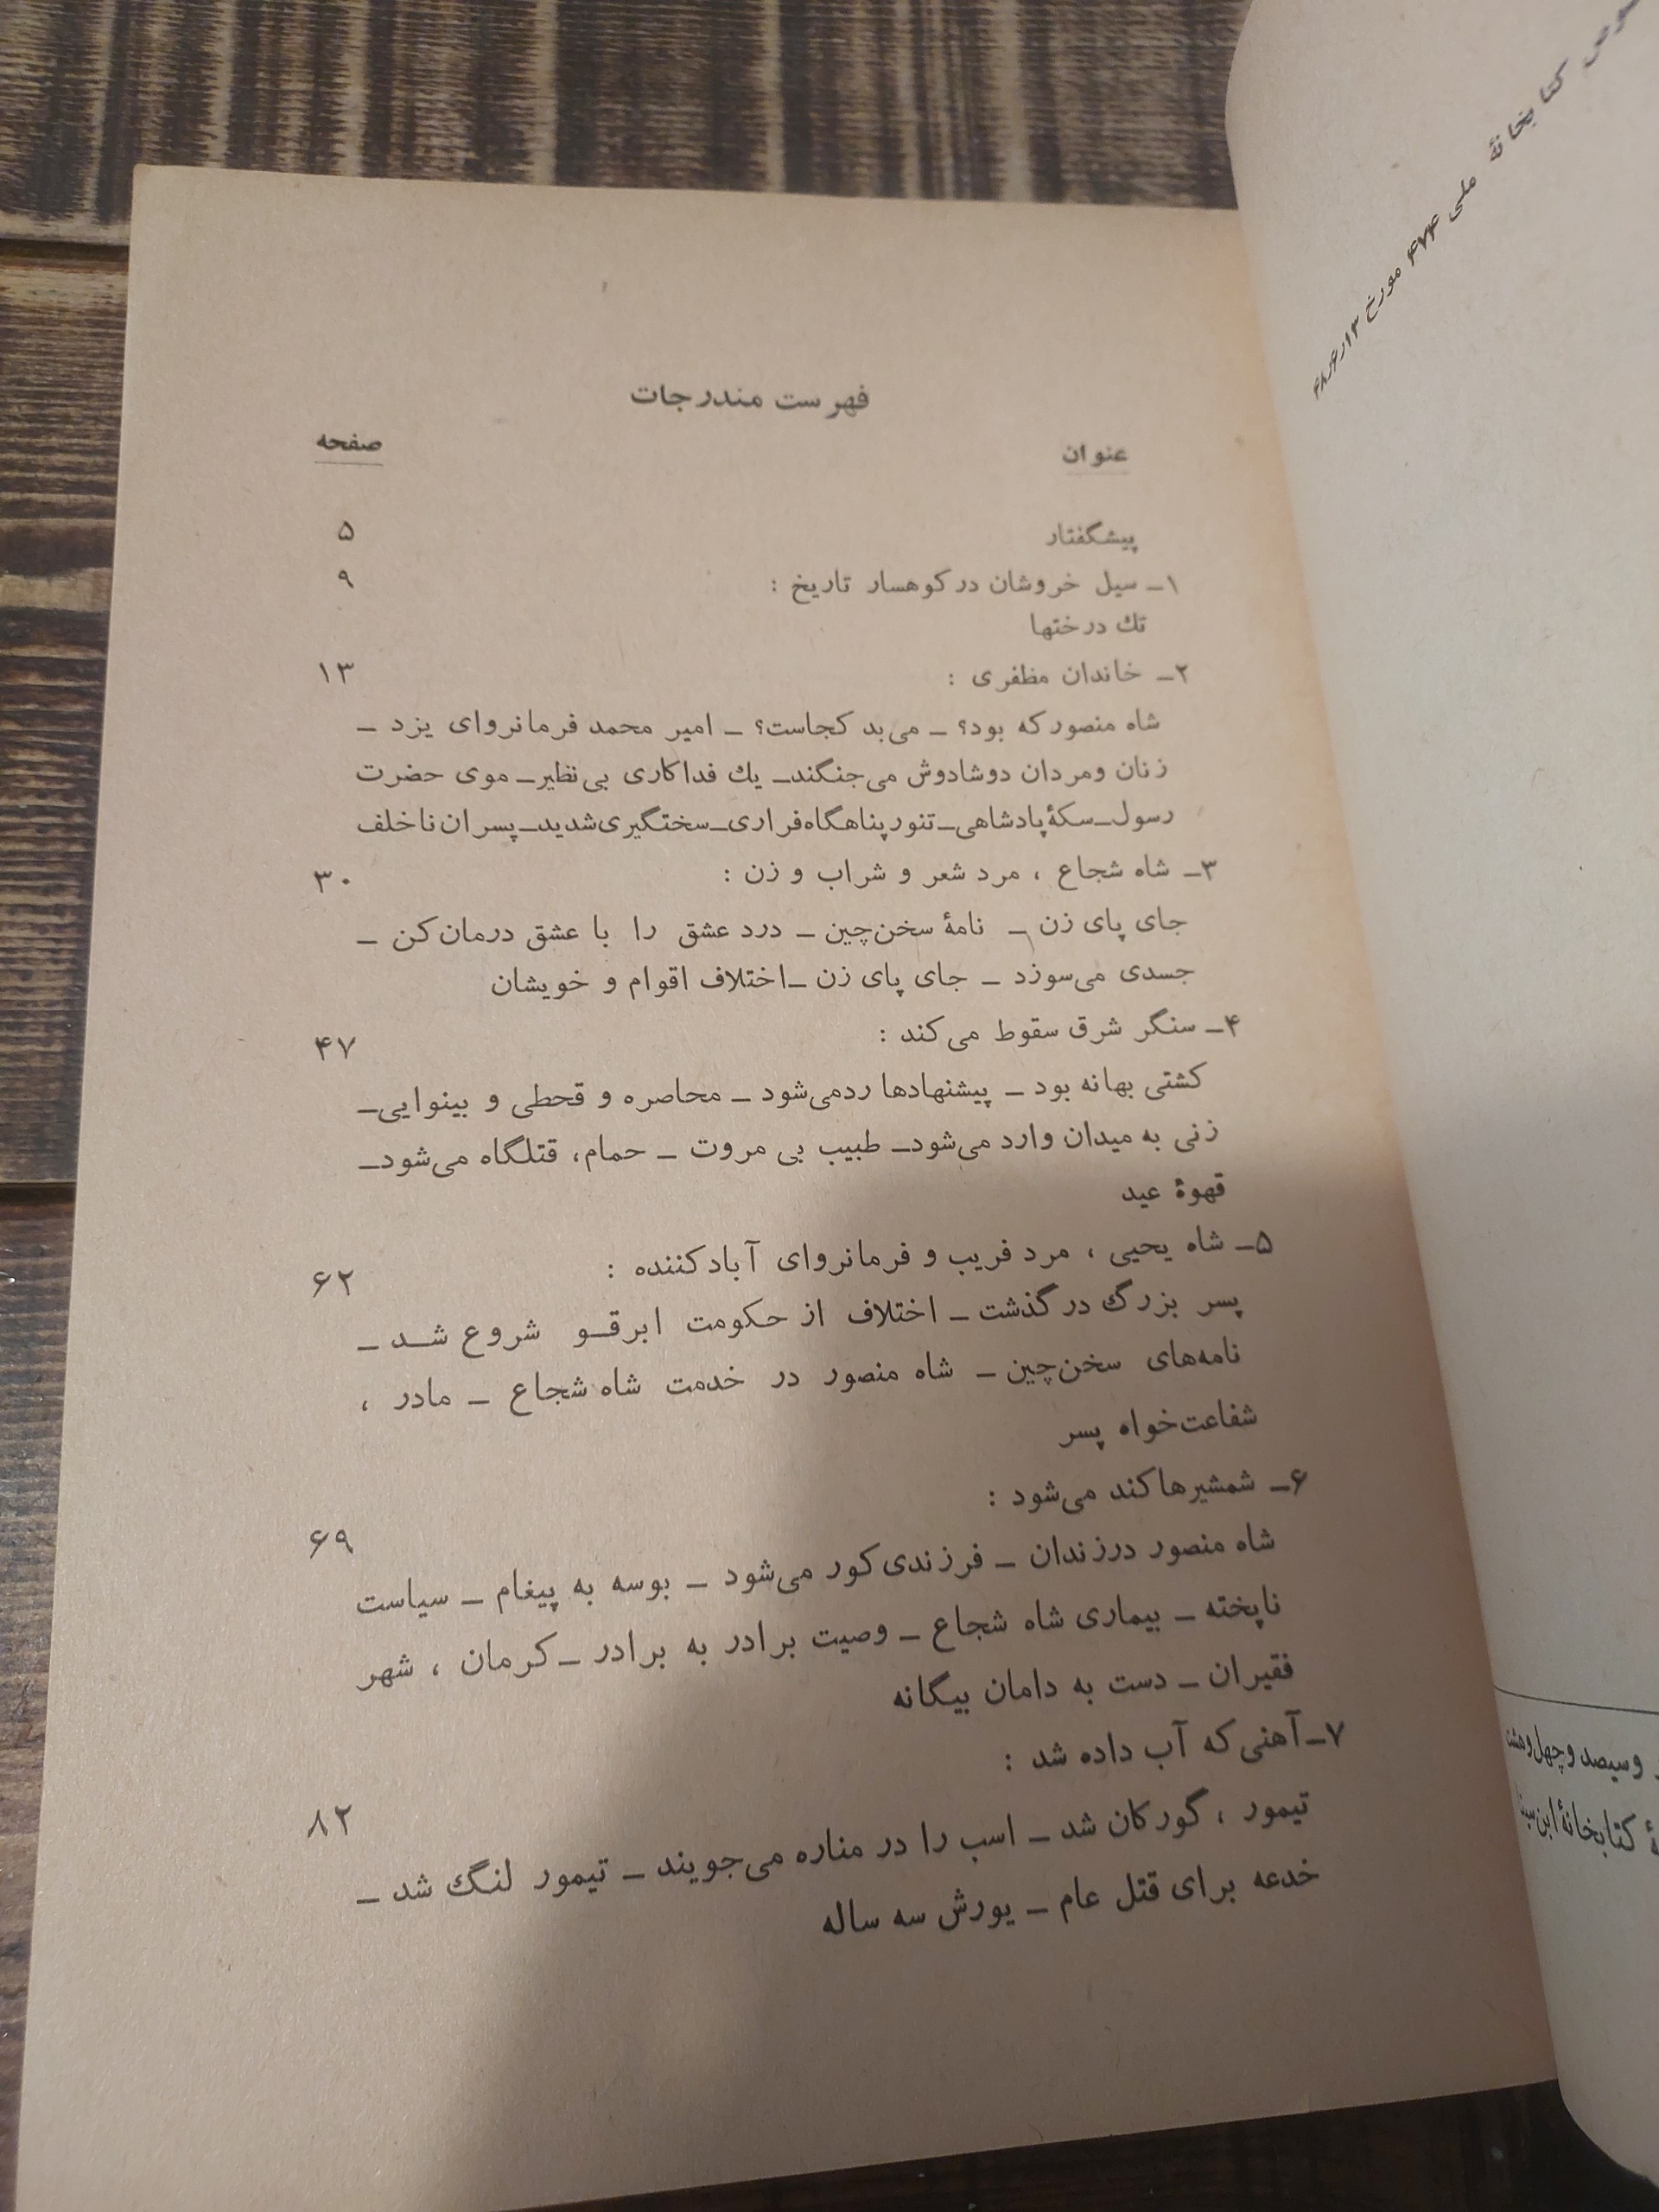 فهرست مندرجات
عنوان صفحه
پیشگفتار ۵
۱ـ سیل خروشان در کوهسار تاریخ : ۹
تك درختها
۲ـ خاندان مظفری : ۱۳
شاه منصور که بود؟ ـ می‌بد کجاست؟ ـ امیر محمد فرمانروای یزد ـ
زنان ومردان دوشادوش می‌جنگند ـ یك فداکاری بی‌نظیر ـ موی حضرت
رسول ـ سکهٔ پادشاهی ـ تنور پناهگاه فراری ـ سختگیری شدید ـ پسران ناخلف
۳ـ شاه شجاع ، مرد شعر و شراب و زن : ۳۰
جای پای زن ـ نامهٔ سخن‌چین ـ درد عشق را با عشق درمان کن ـ
جسدی می‌سوزد ـ جای پای زن ـ اختلاف اقوام و خویشان
۴ـ سنگر شرق سقوط می‌کند : ۴۷
کشتی بهانه بود ـ پیشنهادها ردمی‌شود ـ محاصره و قحطی و بینوایی ـ
زنی به میدان وارد می‌شود ـ طبیب بی مروت ـ حمام، قتلگاه می‌شود ـ
قهوهٔ عید
۵ـ شاه یحیی ، مرد فریب و فرمانروای آبادکننده : ۶۲
پسر بزرگ درگذشت ـ اختلاف از حکومت ابرقـو شروع شـد ـ
نامه‌های سخن‌چین ـ شاه منصور در خدمت شاه شجاع ـ مادر ،
شفاعت‌خواه پسر
۶ـ شمشیرها کند می‌شود : ۶۹
شاه منصور درزندان ـ فرزندی کور می‌شود ـ بوسه به پیغام ـ سیاست
ناپخته ـ بیماری شاه شجاع ـ وصیت برادر به برادر ـ کرمان ، شهر
فقیران ـ دست به دامان بیگانه
۷ـ آهنی که آب داده شد : ۸۲
تیمور ، گورکان شد ـ اسب را در مناره می‌جویند ـ تیمور لنگ شد ـ
خدعه برای قتل عام ـ یورش سه ساله
کتابخانهٔ ملی ۴۷۴ مورخ
وسیصد وچهل وهشت
کتابخانهٔ ابن‌سینا